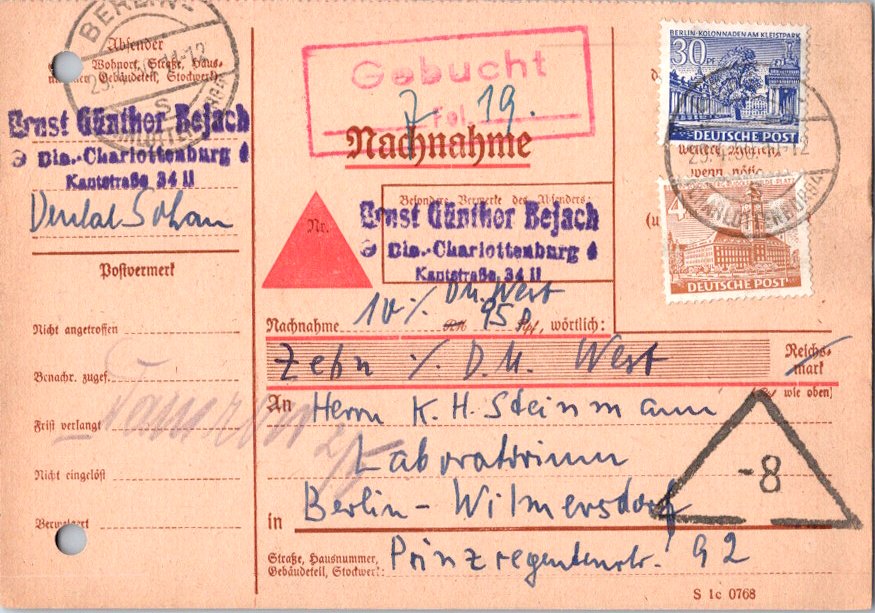 BERLIN-
Absender
Wohnort, Straße, Haus-
Gebäudeteil, Stockwerk
Ernst Günther Bejach
Bln.-Charlottenburg 4
Kantstraße 34 II
Postvermerk
Nicht angetroffen
Benachr. zugef.
Frist verlangt
Nicht eingelöst
Verweigert
Gebucht
Fol. 19.
Nachnahme
Nr.
Besondere Vermerke des Absenders
Ernst Günther Bejach
Bln.-Charlottenburg 4
Kantstraße 34 II
BERLIN·KOLONNADEN AM KLEISTPARK
30 PF
DEUTSCHE POST
wenn nötig
CHARLOTTENBURG
DEUTSCHE POST
D.M. West
Nachnahme 10 /. 95 Pf, wörtlich:
Zehn /. D.M. West Reichs-
mark
wie oben)
An Herrn K. H. Steinmann
Laboratorium
in Berlin-Wilmersdorf
Straße, Hausnummer,
Gebäudeteil, Stockwerk: Prinzregentenstr. 92
-8
S 1c 0768